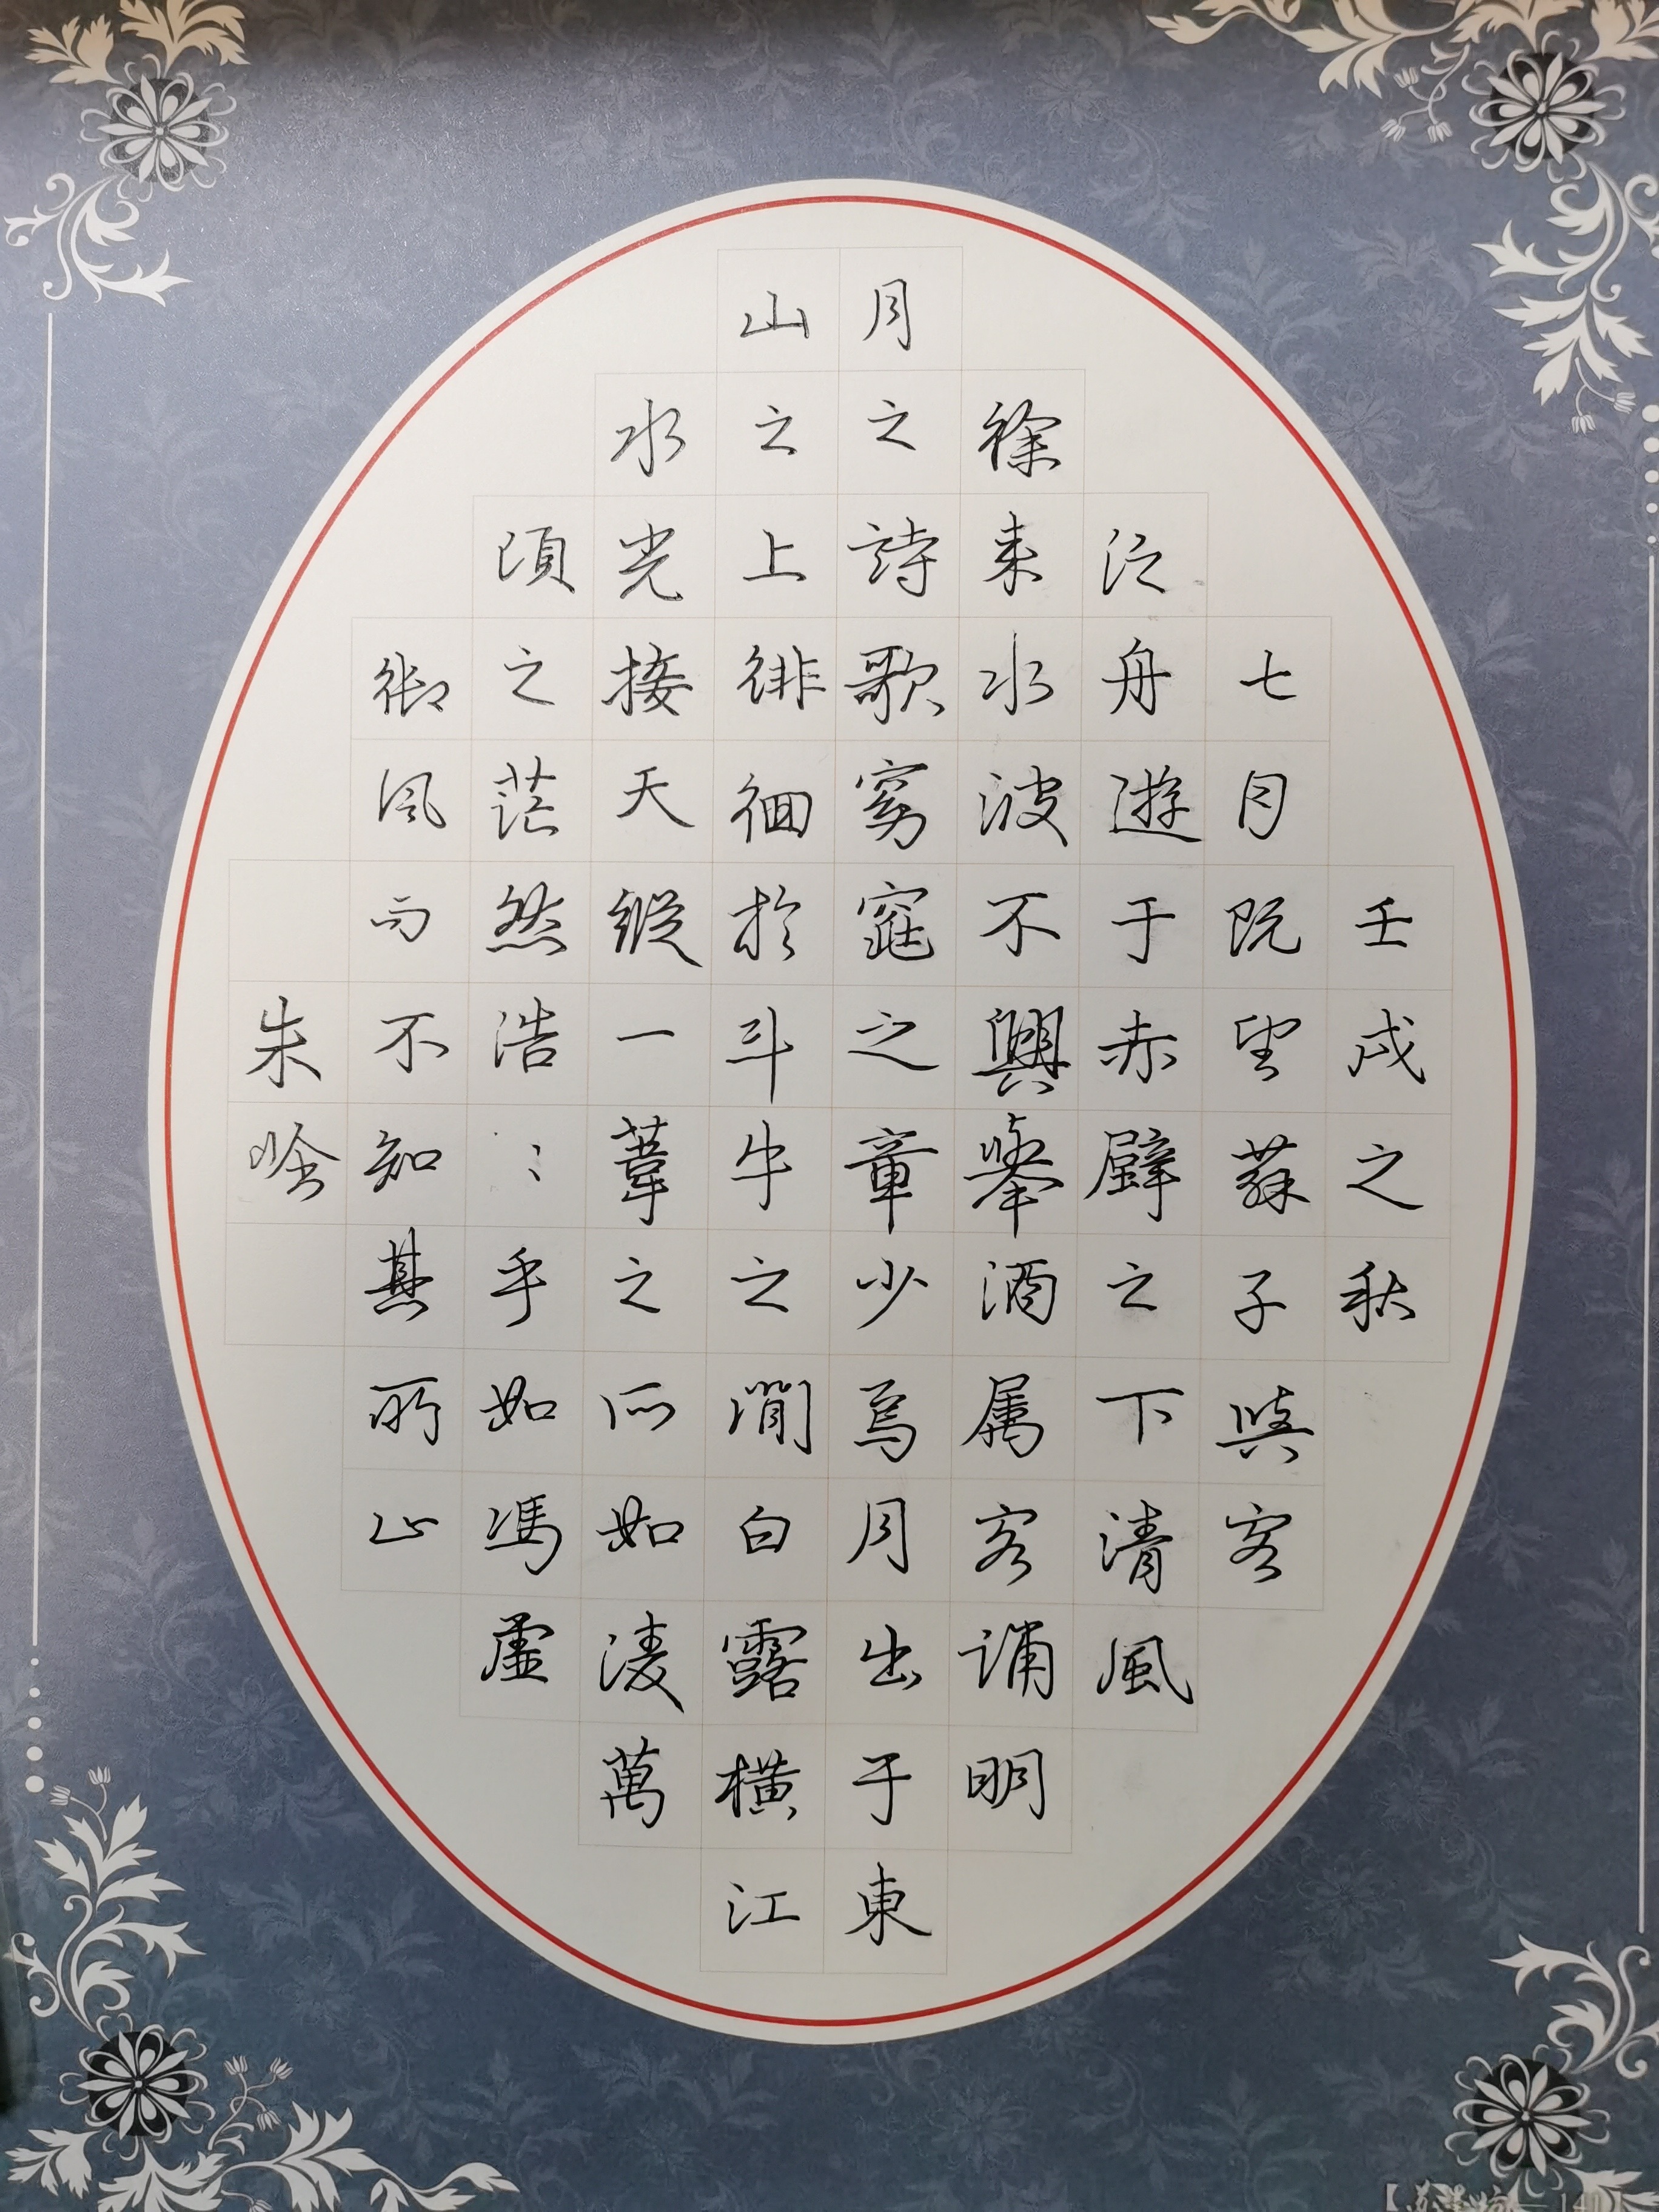 壬戌之秋
七月既望蘇子與客
泛舟遊于赤壁之下清風
徐来水波不興舉酒属客誦明
月之詩歌窈窕之章少焉月出于東
山之上徘徊於斗牛之間白露横江
水光接天縱一葦之所如凌萬
頃之茫然浩〻乎如馮虚
御風而不知其所止
朱